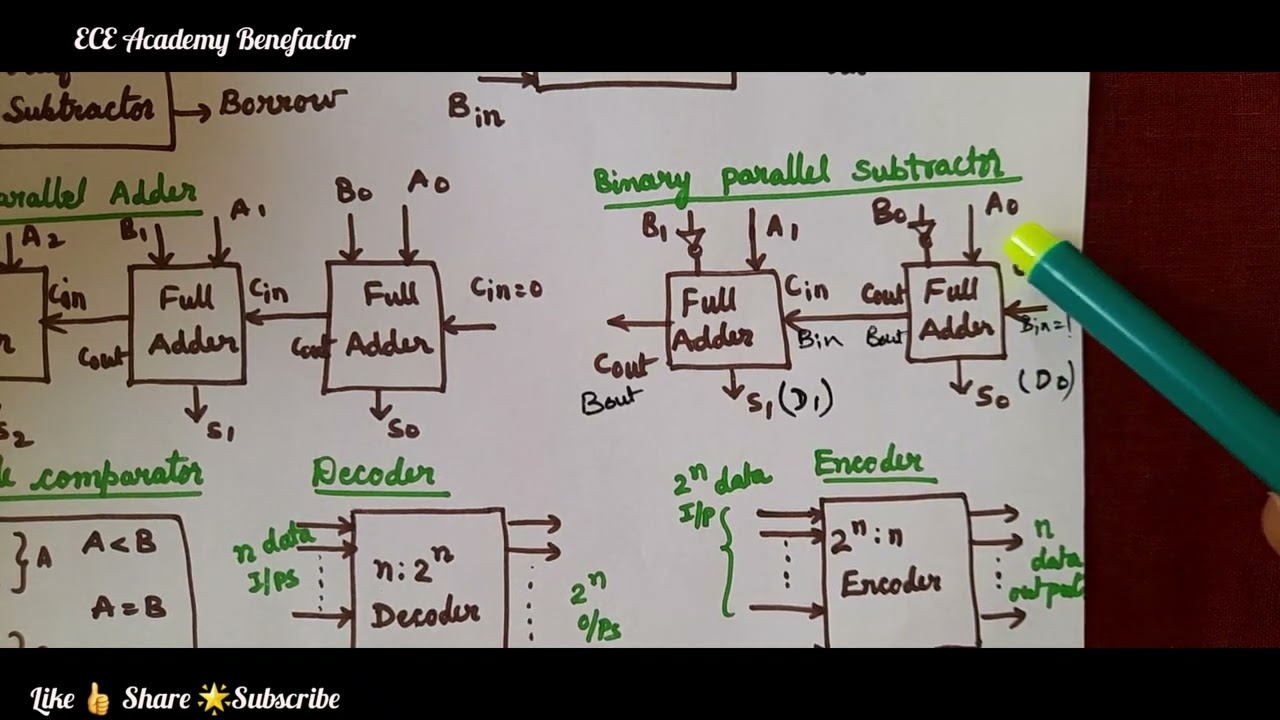 ECE Academy Benefactor
Subtractor
Borrow
Bin
Parallel Adder
A2
B1
A1
B0
A0
Cin
Full
Adder
Cin
Full
Adder
Cin=0
Cout
Cout
S2
S1
S0
Binary parallel subtractor
B1
A1
B0
A0
Full
Adder
Cin
Bin
Cout
Bout
Full
Adder
Bin=1
Cout
Bout
S1 (D1)
S0 (D0)
comparator
} A
A<B
A=B
Decoder
n data
I/PS
n:2ⁿ
Decoder
2ⁿ
O/Ps
Encoder
2ⁿ data
I/P
2ⁿ:n
Encoder
n
data
output
Like 👍 Share 🌟Subscribe